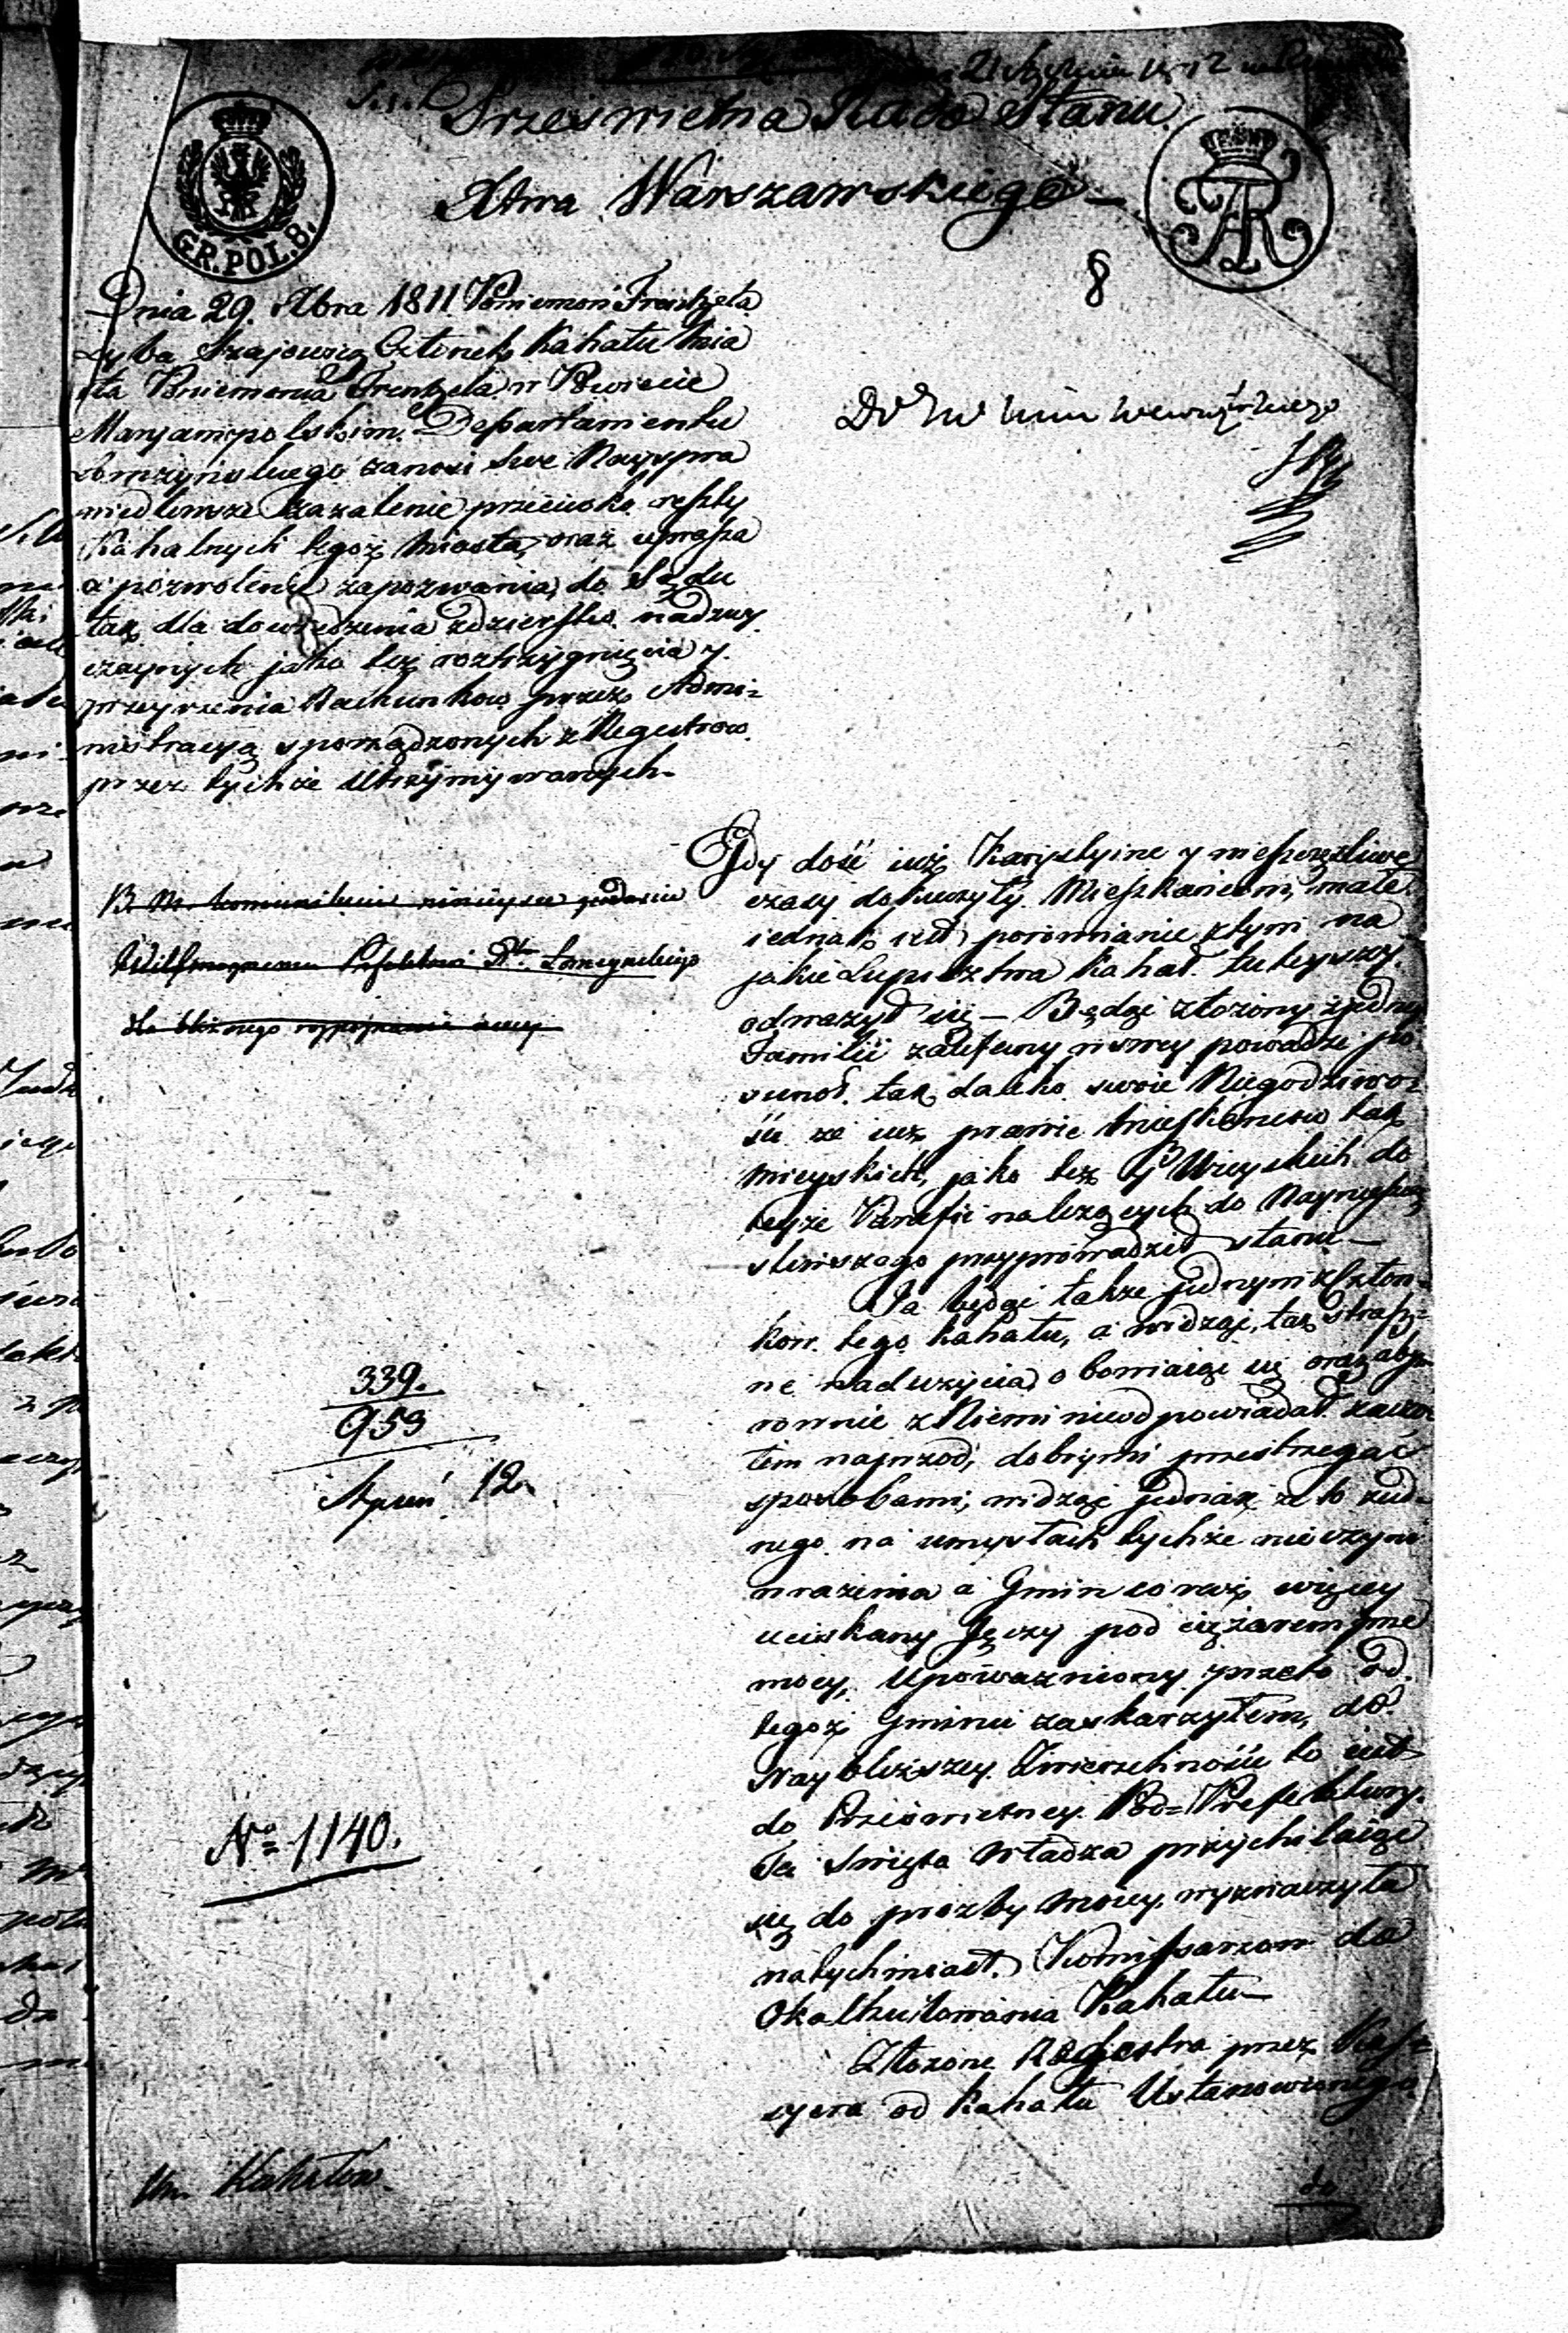 Prześwietna Rado Stanu
Xtwa Warszawskiego —
GR. POL. 8.
8
Dnia 29. Xbra 1811. Poniemoń Frentzela
Leyba Szajowicz Członek Kahału Mia
sta Poniemonia Frentzela w Powiecie
Maryampolskim Departamentu
Łomzynskiego zanosi swe Nayspra
wiedliwsze zazalenie przeciwko reszty
Kahalnych tegoż Miasta, oraz uprasza
o pozwolenie zapozwania do Sądu
tak dla dowiedzenia zdzierstw nadzwy
czaynych jako też roztrzygnięcia y
przeyrzenia Rachunkow przez Admi-
nistracyą sporządzonych z Regestrow
przez tychże Utrzymywanych.
Do JW Min Wewnętrznego
B. M. kommunikuie ninieysze podanie
Prefektowi Dtu Łomzynskiego
dla bliznego rozpoznania
339.
953
Styczeń 12
No 1140.
Kahałow
Gdy dość iuż Karystyine y nieszczęśliwe
czasy dokuczyły Mieszkańcom, małe
iednak iest porównanie z tym na
jakie Łupieztwa Kahał tuteyszy
odważył się — Będąc złożony z jedney
Familii zaufany w swey powadze po
sunoł tak daleko swoie Niegodziwo-
ści że iuż prawie Mieszkancow tak
Mieyskich, jako też y Wieyskich do
teyże Parafii należących do Naynieszczę
śliwszego przyprowadził stanu —
Ja będąc także jednym z Członk-
kow tego Kahału, a widząc tak straszne
nadużycia, obawiaiąc się oraz abym
rownie z Niemi nieodpowiadał zaczo
łem naprzod, dobrymi przestrzegać
sposobami, widząc jednak że to żad-
nego na umysłach tychże nieczyni
wrażenia a Gmin coraz więcey
uciskany Jęczy pod ciężarem prze
mocy, Upoważniony przeto od
tegoż Gminu zaskarzyłem, do
Naybliższey Zwierzchności to iest
do Prześwietney Pod-Prefektury.
Ta Swięta Władza przychilaiąc
się do prozby Moiey, wyznaczyła
natychmiast Kommissarzow do
Okalkulowania Kahału —
Złozone Regestra przez Kass-
yera od Kahału Ustanowionego
do